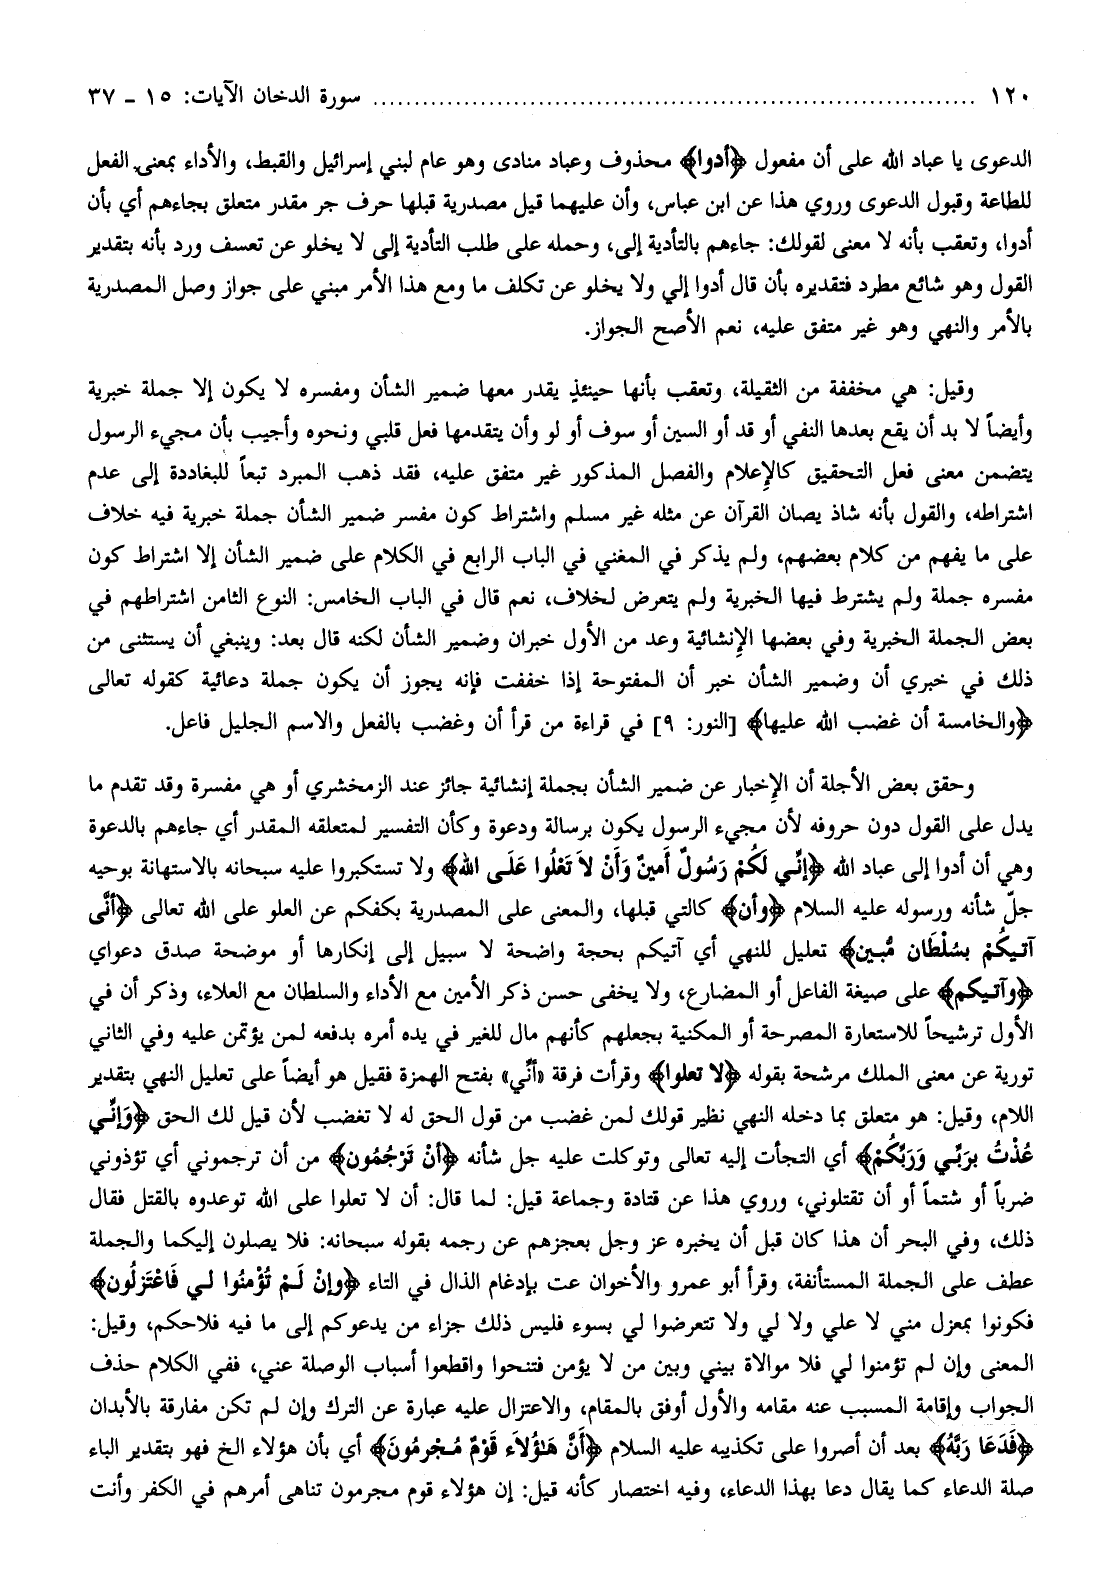 ١٢٠ ........................................................................ سورة الدخان الآيات: ١٥ - ٣٧
الدعوى يا عباد الله على أن مفعول ﴿أدوا﴾ محذوف وعباد منادى وهو عام لبني إسرائيل والقبط، والأداء بمعنى الفعل
للطاعة وقبول الدعوى وروي هذا عن ابن عباس، وأن عليهما قيل مصدرية قبلها حرف جر مقدر متعلق بجاءهم أي بأن
أدوا، وتعقب بأنه لا معنى لقولك: جاءهم بالتأدية إلى، وحمله على طلب التأدية إلى لا يخلو عن تعسف ورد بأنه بتقدير
القول وهو شائع مطرد فتقديره بأن قال أدوا إلي ولا يخلو عن تكلف ما ومع هذا الأمر مبني على جواز وصل المصدرية
بالأمر والنهي وهو غير متفق عليه، نعم الأصح الجواز.
وقيل: هي مخففة من الثقيلة، وتعقب بأنها حينئذٍ يقدر معها ضمير الشأن ومفسره لا يكون إلا جملة خبرية
وأيضاً لا بد أن يقع بعدها النفي أو قد أو السين أو سوف أو لو وأن يتقدمها فعل قلبي ونحوه وأجيب بأن مجيء الرسول
يتضمن معنى فعل التحقيق كالإِعلام والفصل المذكور غير متفق عليه، فقد ذهب المبرد تبعاً للبغاددة إلى عدم
اشتراطه، والقول بأنه شاذ يصان القرآن عن مثله غير مسلم واشتراط كون مفسر ضمير الشأن جملة خبرية فيه خلاف
على ما يفهم من كلام بعضهم، ولم يذكر في المغني في الباب الرابع في الكلام على ضمير الشأن إلا اشتراط كون
مفسره جملة ولم يشترط فيها الخبرية ولم يتعرض لخلاف، نعم قال في الباب الخامس: النوع الثامن اشتراطهم في
بعض الجملة الخبرية وفي بعضها الإِنشائية وعد من الأول خبران وضمير الشأن لكنه قال بعد: وينبغي أن يستثنى من
ذلك في خبري أن وضمير الشأن خبر أن المفتوحة إذا خففت فإنه يجوز أن يكون جملة دعائية كقوله تعالى
﴿والخامسة أن غضب الله عليها﴾ [النور: ٩] في قراءة من قرأ أن وغضب بالفعل والاسم الجليل فاعل.
وحقق بعض الأجلة أن الإِخبار عن ضمير الشأن بجملة إنشائية جائز عند الزمخشري أو هي مفسرة وقد تقدم ما
يدل على القول دون حروفه لأن مجيء الرسول يكون برسالة ودعوة وكأن التفسير لمتعلقه المقدر أي جاءهم بالدعوة
وهي أن أدوا إلى عباد الله ﴿إِنِّي لَكُمْ رَسُولٌ أَمينٌ وَأَنْ لاَ تَعْلُوا عَلَى الله﴾ ولا تستكبروا عليه سبحانه بالاستهانة بوحيه
جلّ شأنه ورسوله عليه السلام ﴿وأن﴾ كالتي قبلها، والمعنى على المصدرية بكفكم عن العلو على الله تعالى ﴿أنَّى
آتيكُمْ بسُلْطَان مُّبين﴾ تعليل للنهي أي آتيكم بحجة واضحة لا سبيل إلى إنكارها أو موضحة صدق دعواي
﴿وآتيكم﴾ على صيغة الفاعل أو المضارع، ولا يخفى حسن ذكر الأمين مع الأداء والسلطان مع العلاء، وذكر أن في
الأول ترشيحاً للاستعارة المصرحة أو المكنية بجعلهم كأنهم مال للغير في يده أمره بدفعه لمن يؤتمن عليه وفي الثاني
تورية عن معنى الملك مرشحة بقوله ﴿لا تعلوا﴾ وقرأت فرقة «أنِّي» بفتح الهمزة فقيل هو أيضاً على تعليل النهي بتقدير
اللام، وقيل: هو متعلق بما دخله النهي نظير قولك لمن غضب من قول الحق له لا تغضب لأن قيل لك الحق ﴿وَإِنِّي
عُذْتُ برَبِّي وَرَبِّكُمْ﴾ أي التجأت إليه تعالى وتوكلت عليه جل شأنه ﴿أَنْ تَرْجُمُون﴾ من أن ترجموني أي تؤذوني
ضرباً أو شتماً أو أن تقتلوني، وروي هذا عن قتادة وجماعة قيل: لما قال: أن لا تعلوا على الله توعدوه بالقتل فقال
ذلك، وفي البحر أن هذا كان قبل أن يخبره عز وجل بعجزهم عن رجمه بقوله سبحانه: فلا يصلون إليكما والجملة
عطف على الجملة المستأنفة، وقرأ أبو عمرو والأخوان عت بإدغام الذال في التاء ﴿وإِنْ لَمْ تُؤْمنُوا لي فَاعْتَزلُون﴾
فكونوا بمعزل مني لا علي ولا لي ولا تتعرضوا لي بسوء فليس ذلك جزاء من يدعوكم إلى ما فيه فلاحكم، وقيل:
المعنى وإن لم تؤمنوا لي فلا موالاة بيني وبين من لا يؤمن فتنحوا واقطعوا أسباب الوصلة عني، ففي الكلام حذف
الجواب وإقامة المسبب عنه مقامه والأول أوفق بالمقام، والاعتزال عليه عبارة عن الترك وإن لم تكن مفارقة بالأبدان
﴿فَدَعَا رَبَّهُ﴾ بعد أن أصروا على تكذيبه عليه السلام ﴿أَنَّ هَؤُلاَء قَوْمٌ مُجْرمُونَ﴾ أي بأن هؤلاء الخ فهو بتقدير الباء
صلة الدعاء كما يقال دعا بهذا الدعاء، وفيه اختصار كأنه قيل: إن هؤلاء قوم مجرمون تناهى أمرهم في الكفر وأنت